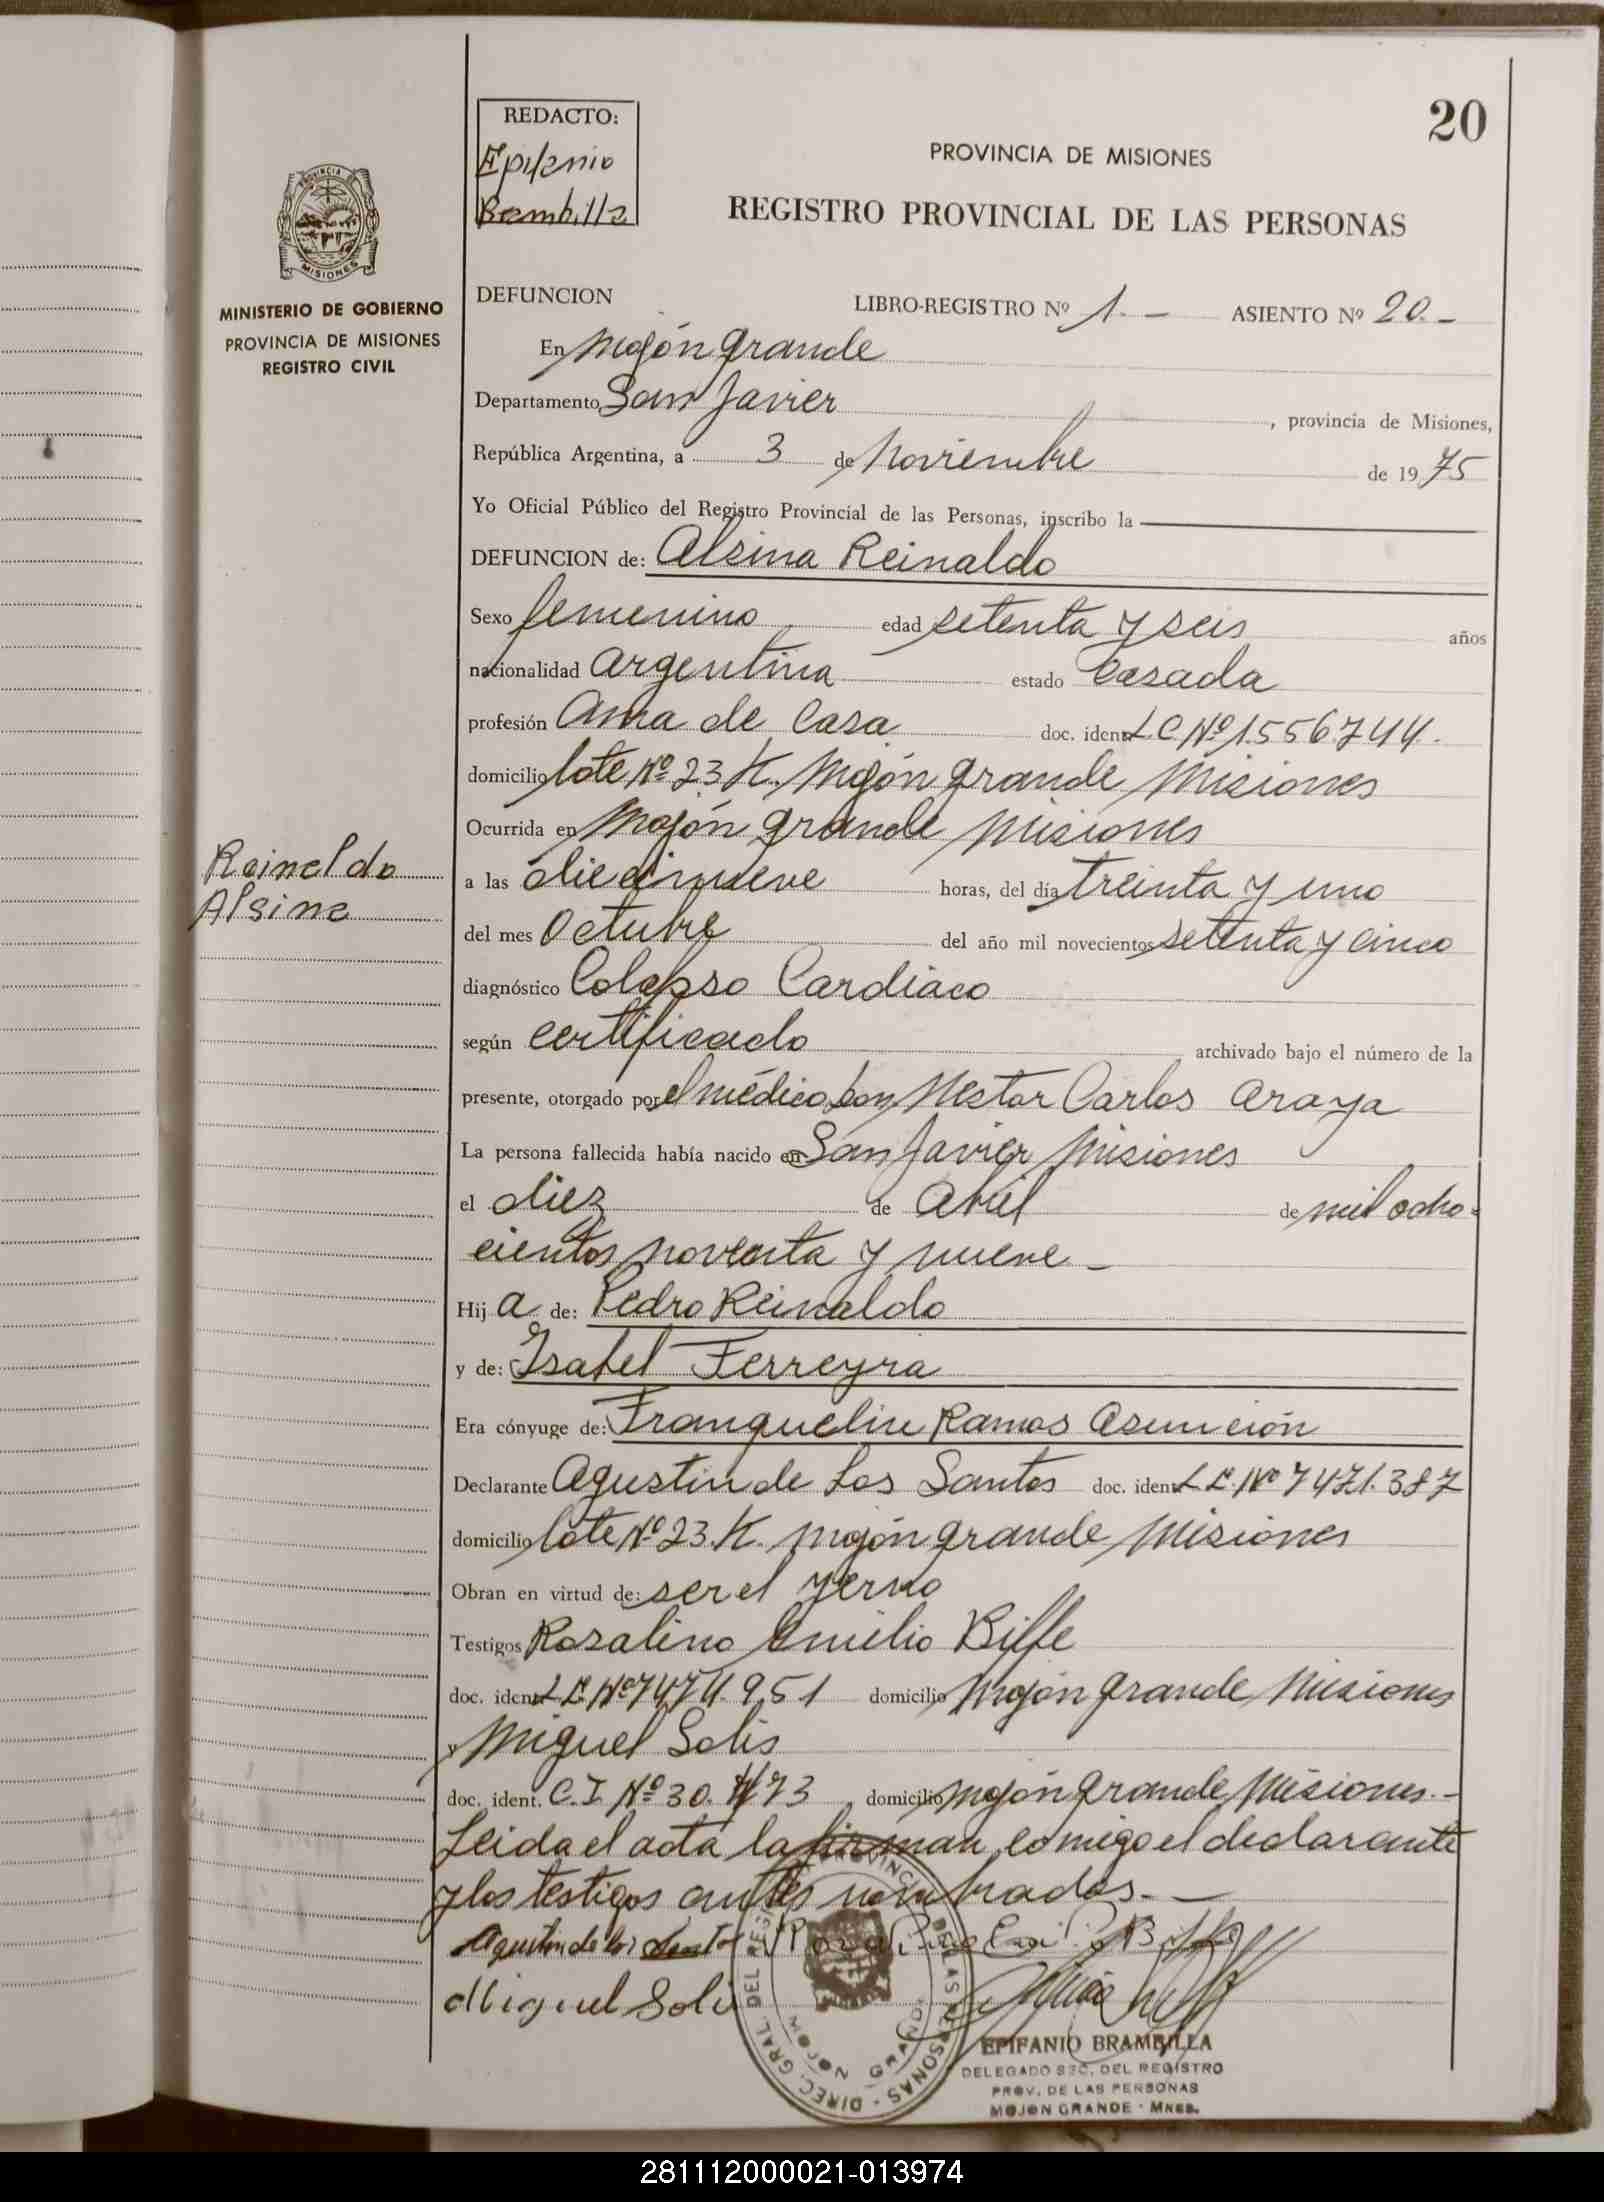 20
REDACTO:
Epifanio
Brambilla
PROVINCIA DE MISIONES
REGISTRO PROVINCIAL DE LAS PERSONAS
PROVINCIA DE
MISIONES
MINISTERIO DE GOBIERNO
PROVINCIA DE MISIONES
REGISTRO CIVIL
DEFUNCION LIBRO-REGISTRO Nº 1.- ASIENTO Nº 20.-
En Mojón Grande
Departamento San Javier, provincia de Misiones,
República Argentina, a 3 de Noviembre de 1975
Yo Oficial Público del Registro Provincial de las Personas, inscribo la
DEFUNCION de: Alsina Reinaldo
Sexo femenino edad setenta y seis años
nacionalidad argentina estado Casada
profesión Ama de Casa doc. ident. L.C.Nº 1.556.744.
domicilio lote Nº 23 K. Mojón Grande Misiones
Ocurrida en Mojón Grande Misiones
Reinaldo
Alsina
a las diecinueve horas, del día treinta y uno
del mes Octubre del año mil novecientos setenta y cinco
diagnóstico Colapso Cardiaco
según certificado archivado bajo el número de la
presente, otorgado por el médico don Nestor Carlos Araya
La persona fallecida había nacido en San Javier Misiones
el diez de Abril de mil ocho-
cientos noventa y nueve -
Hija de: Pedro Reinaldo
y de: Isabel Ferreyra
Era cónyuge de: Franquelin Ramos Asunción
Declarante Agustin de Los Santos doc. ident. L.E.Nº 7471.387
domicilio lote Nº 23.K. Mojón Grande Misiones
Obran en virtud de: ser el yerno
Testigos Rosalino Emilio Biffe
doc. ident. L.E.Nº 7474.951 domicilio Mojón Grande Misiones
y Miguel Solis
doc. ident. C.I Nº 30. 773 domicilio Mojón Grande Misiones.-
Leida el acta la firman comigo el declarante
y los testigos antes nombrados.-
Agustin de los Santos Rosalino Emilio Biffe
Miguel Solis
DIREC. GRAL. DEL REGISTRO PROVINCIAL DE LAS PERSONAS
MOJON GRANDE
EPIFANIO BRAMBILLA
DELEGADO SEC. DEL REGISTRO
PROV. DE LAS PERSONAS
MOJON GRANDE - MNES.
281112000021-013974